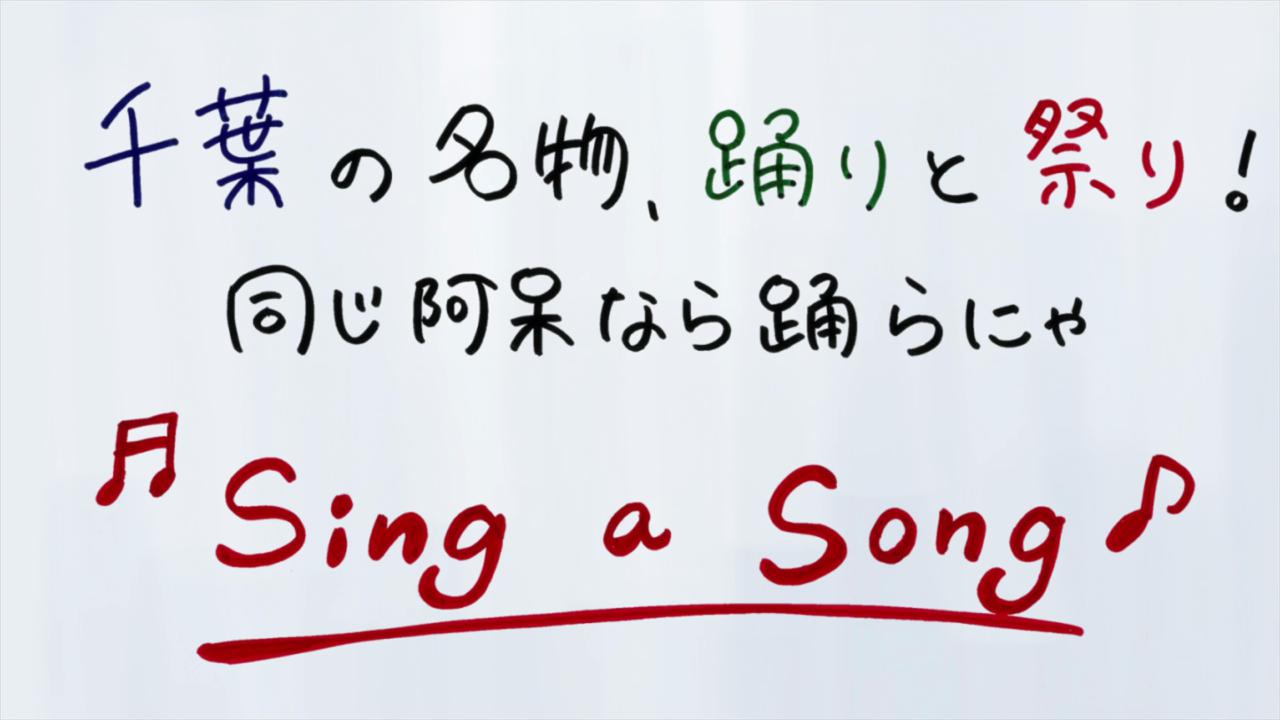 千葉の名物、踊りと祭り!
同じ阿呆なら踊らにゃ
Sing a Song